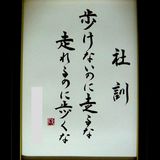 社訓
歩けないのに走るな
走れるのに歩くな